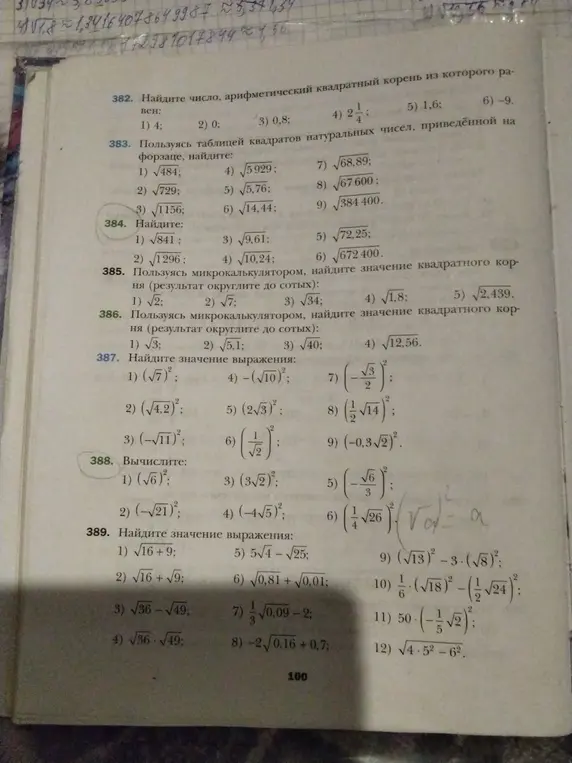 382. Найдите число, арифметический квадратный корень из которого ра-
вен:
1) 4; 2) 0; 3) 0,8; 4) 2 1/4; 5) 1,6; 6) −9.
383. Пользуясь таблицей квадратов натуральных чисел, приведённой на
форзаце, найдите:
1) √484; 4) √5 929; 7) √68,89;
2) √729; 5) √5,76; 8) √67 600;
3) √1156; 6) √14,44; 9) √384 400.
384. Найдите:
1) √841; 3) √9,61; 5) √72,25;
2) √1296; 4) √10,24; 6) √672 400.
385. Пользуясь микрокалькулятором, найдите значение квадратного кор-
ня (результат округлите до сотых):
1) √2; 2) √7; 3) √34; 4) √1,8; 5) √2,439.
386. Пользуясь микрокалькулятором, найдите значение квадратного кор-
ня (результат округлите до сотых):
1) √3; 2) √5,1; 3) √40; 4) √12,56.
387. Найдите значение выражения:
1) (√7)²; 4) −(√10)²; 7) (−√3/2)²;
2) (√4,2)²; 5) (2√3)²; 8) (1/2 √14)²;
3) (−√11)²; 6) (1/√2)²; 9) (−0,3√2)².
388. Вычислите:
1) (√6)²; 3) (3√2)²; 5) (−√6/3)²;
2) (−√21)²; 4) (−4√5)²; 6) (1/4 √26)². (√a)² = a
389. Найдите значение выражения:
1) √(16 + 9); 5) 5√4 − √25; 9) (√13)² − 3 · (√8)²;
2) √16 + √9; 6) √0,81 + √0,01; 10) 1/6 · (√18)² − (1/2 √24)²;
3) √36 − √49; 7) 1/3 √0,09 − 2; 11) 50 · (−1/5 √2)²;
4) √36 · √49; 8) −2√0,16 + 0,7; 12) √(4 · 5² − 6²).
100